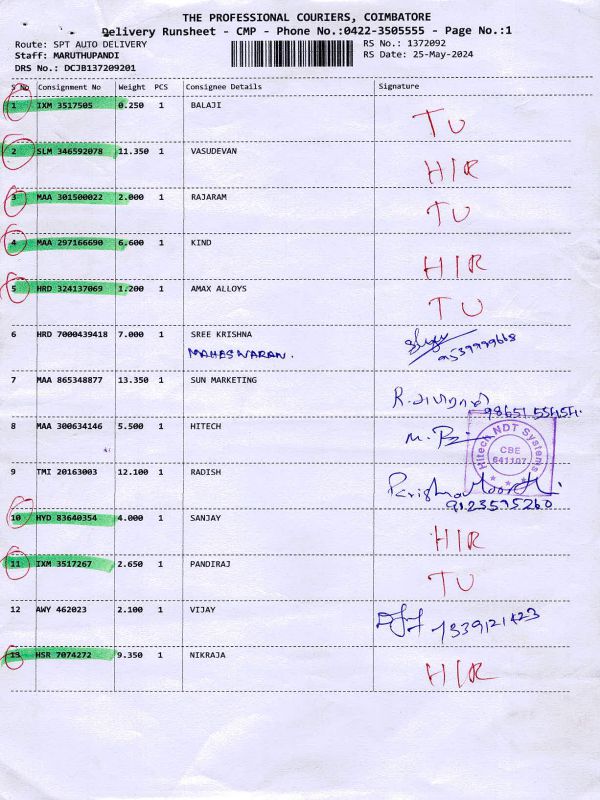 THE PROFESSIONAL COURIERS, COIMBATORE
Delivery Runsheet - CMP - Phone No.:0422-3505555 - Page No.:1
Route: SPT AUTO DELIVERY RS No.: 1372092
Staff: MARUTHUPANDI RS Date: 25-May-2024
DRS No.: DCJB137209201
S No Consignment No Weight PCS Consignee Details Signature
1 IXM 3517505 0.250 1 BALAJI TU
2 SLM 346592078 11.350 1 VASUDEVAN HIR
3 MAA 301500022 2.000 1 RAJARAM TU
4 MAA 297166690 6.600 1 KIND HIR
5 HRD 324137069 1.200 1 AMAX ALLOYS TU
6 HRD 7000439418 7.000 1 SREE KRISHNA
MAHESWARAN.
7 MAA 865348877 13.350 1 SUN MARKETING
8 MAA 300634146 5.500 1 HITECH
Hitech NDT Systems
CBE
641107
9 TMI 20163003 12.100 1 RADISH
9123595260
10 HYD 83640354 4.000 1 SANJAY HIR
11 IXM 3517267 2.650 1 PANDIRAJ TU
12 AWY 462023 2.100 1 VIJAY 7339121423
13 HSR 7074272 9.350 1 NIKRAJA HIR